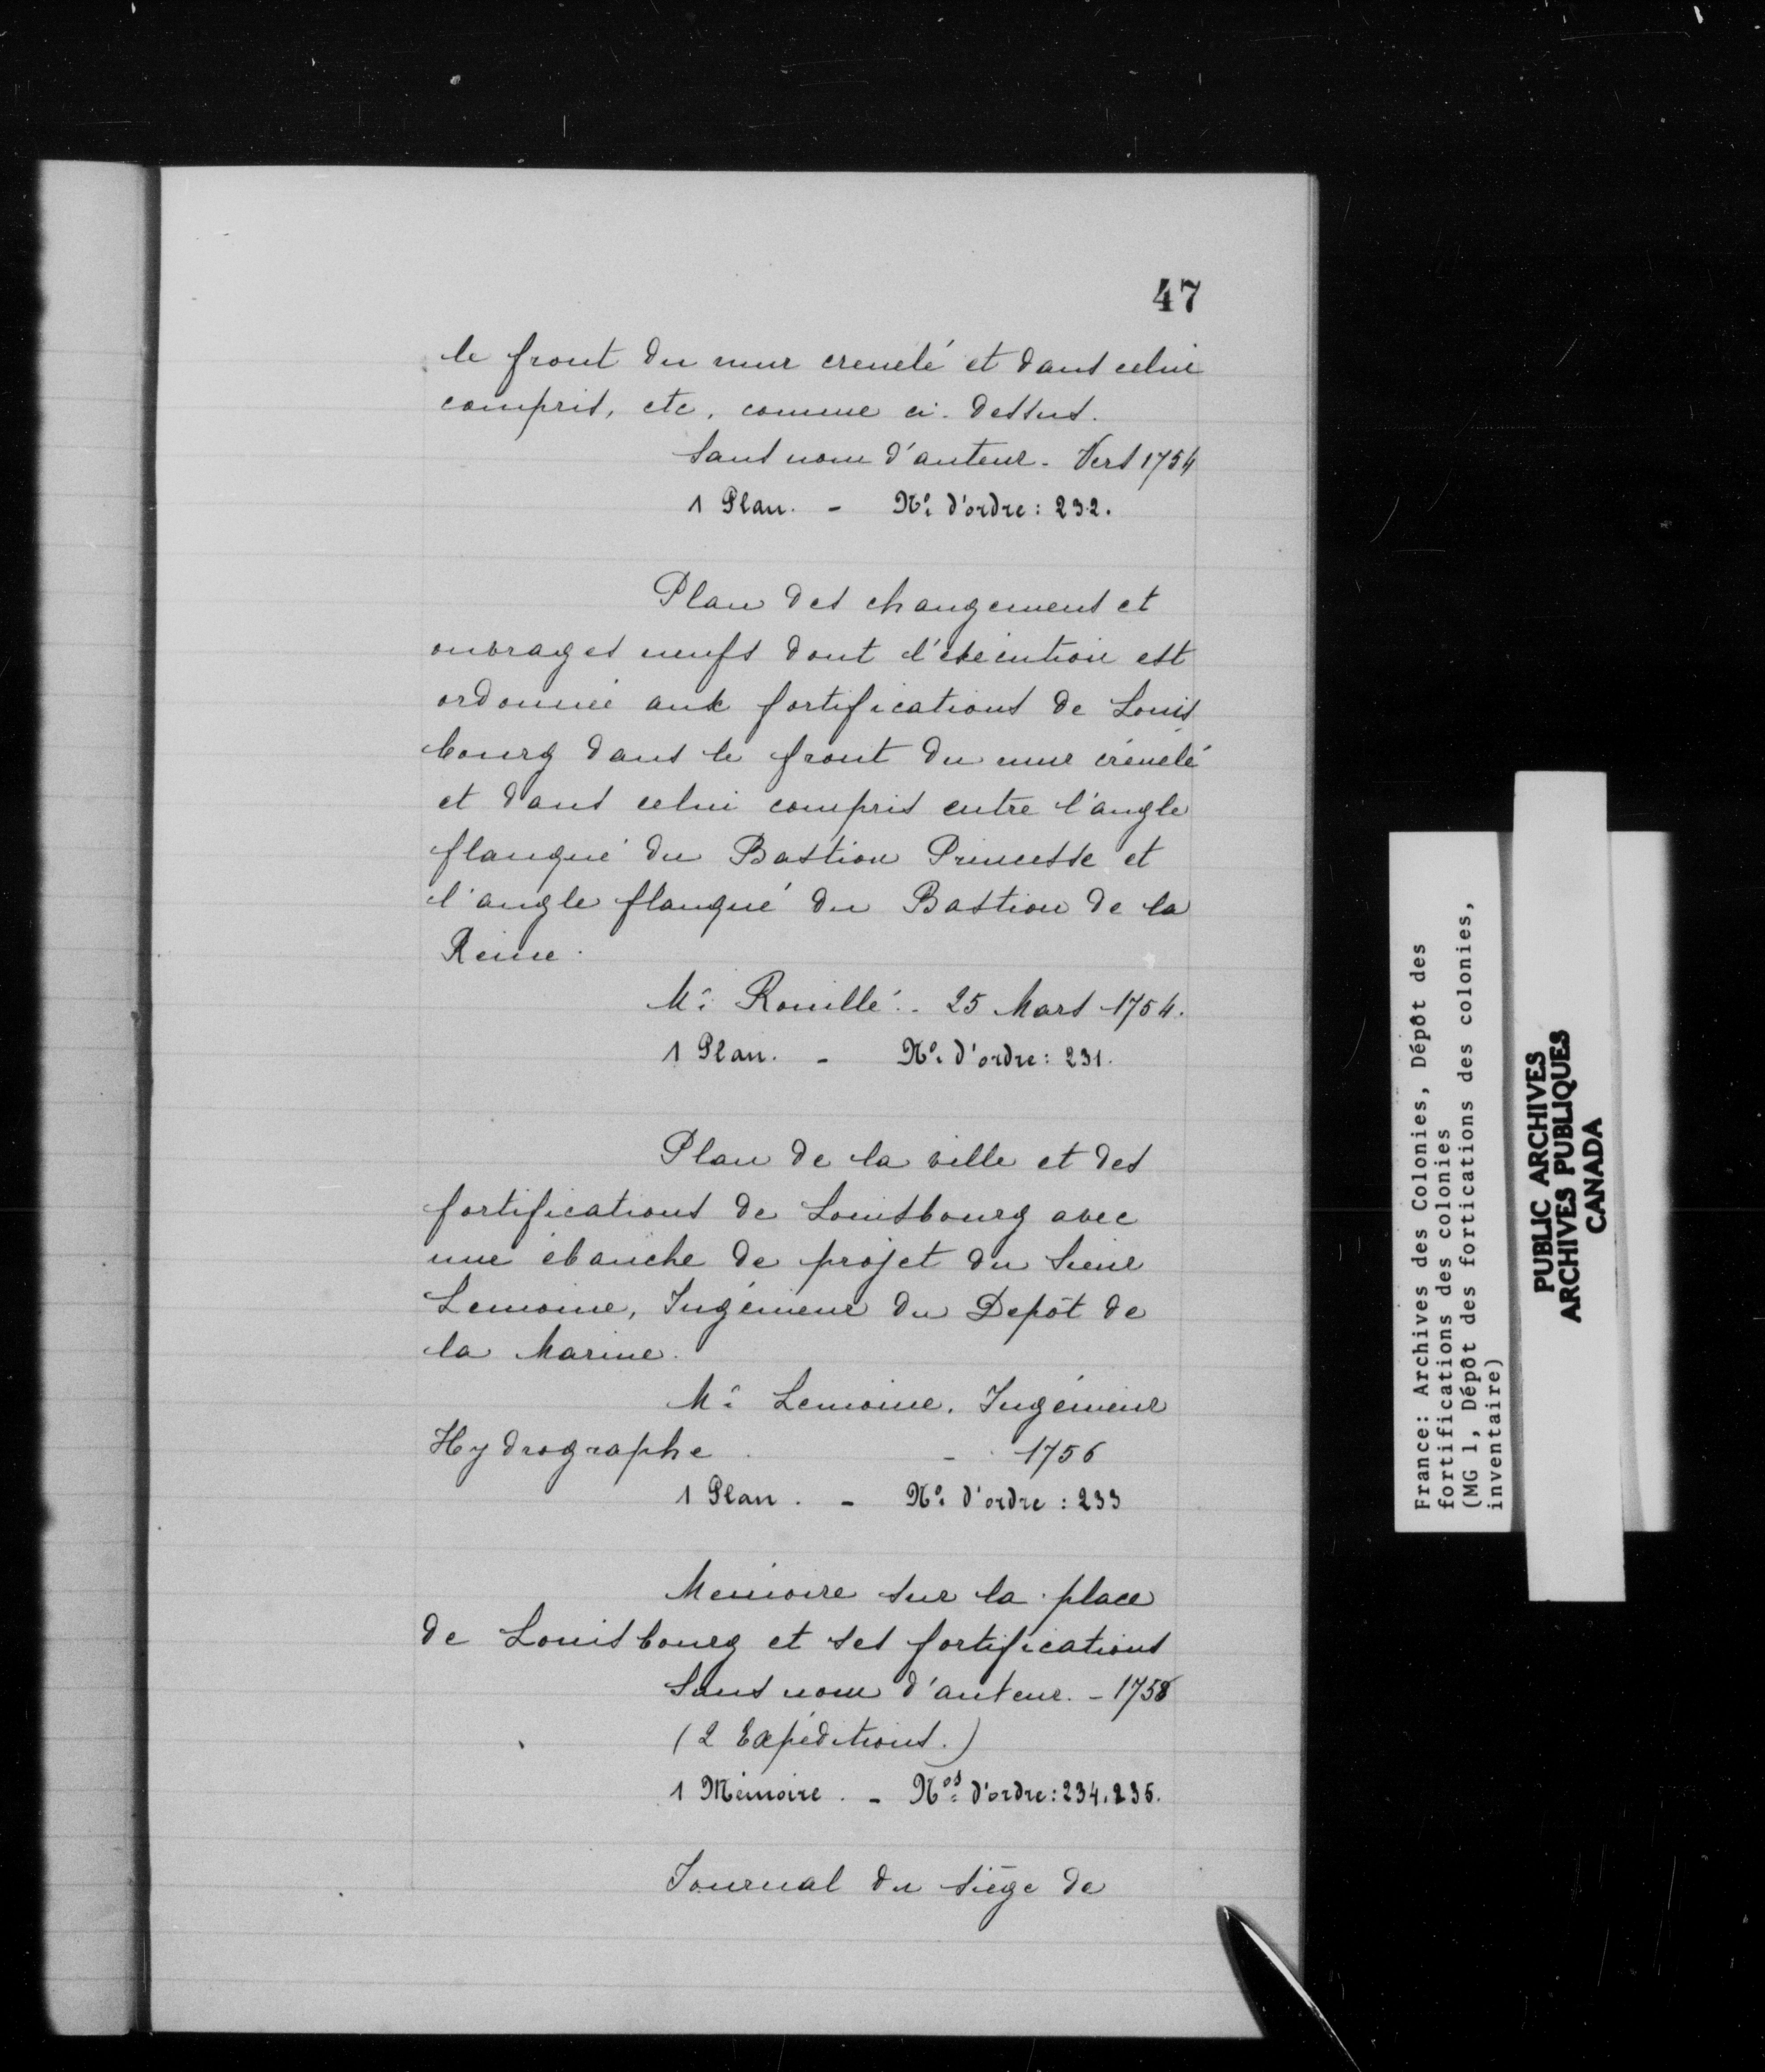 47
le front du mur crenelé et dans celui
compris, etc, comme ci-dessus.
Sans nom d'auteur. Vers 1754
1 Plan. - No. d'ordre: 232.
Plan des changements et
ouvrages neufs dont l'exécution est
ordonnée aux fortifications de Louis
bourg dans le front du mur crénelé
et dans celui compris entre l'angle
flanqué du Bastion Princesse et
l'angle flanqué du Bastion de la
Reine.
Mr. Rouillé. - 25 Mars 1754.
1 Plan. - No. d'ordre: 231.
Plan de la ville et des
fortifications de Louisbourg avec
une ébauche de projet du Sieur
Lemoine, Ingénieur du Depôt de
la Marine.
Mr. Lemoine. Ingénieur
Hydrographe. - 1756
1 Plan. - No. d'ordre: 233
Mémoire sur la place
de Louisbourg et ses fortifications
Sans nom d'auteur. - 1758
(2 Expéditions.)
1 Mémoire. - Nos. d'ordre: 234, 235.
Journal du siège de
France: Archives des Colonies, Dépôt des
fortifications des colonies
(MG 1, Dépôt des fortications des colonies,
inventaire)
PUBLIC ARCHIVES
ARCHIVES PUBLIQUES
CANADA